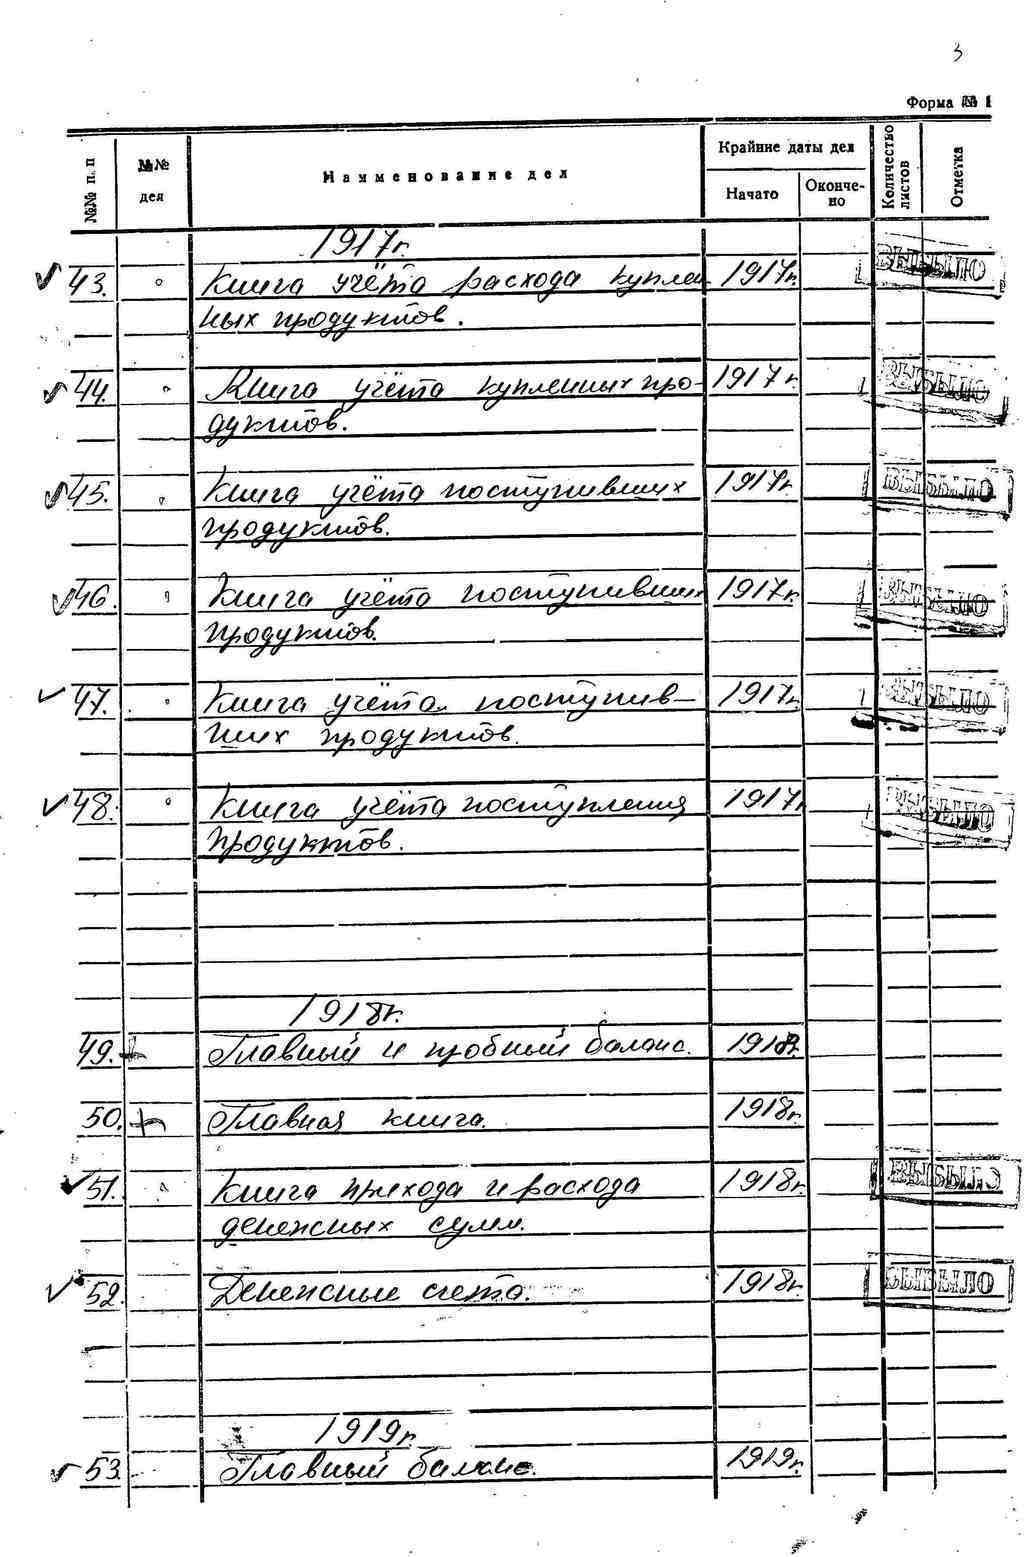 3
Форма № 1
№№ п. п
№№ дел
Наименование дел
Крайние даты дел
Начато
Окончено
Количество листов
Отметка
1917г.
43. Книга учёта расхода куплен- 1917г. ВЫБЫЛО
ных продуктов.
44. Книга учёта купленных про- 1917г. ВЫБЫЛО
дуктов.
45. Книга учёта поступивших 1917г. ВЫБЫЛО
продуктов.
46. Книга учёта поступивших 1917г. ВЫБЫЛО
продуктов.
47. Книга учёта поступив- 1917г. ВЫБЫЛО
ших продуктов.
48. Книга учёта поступления 1917г. ВЫБЫЛО
продуктов.
1918г.
49. + Главный и пробный баланс. 1918г.
50. + Главная книга. 1918г.
51. Книга прихода и расхода 1918г. ВЫБЫЛО
денежных сумм.
52. Денежные счета. 1918г. ВЫБЫЛО
1919г.
53. Главный баланс. 1919г.